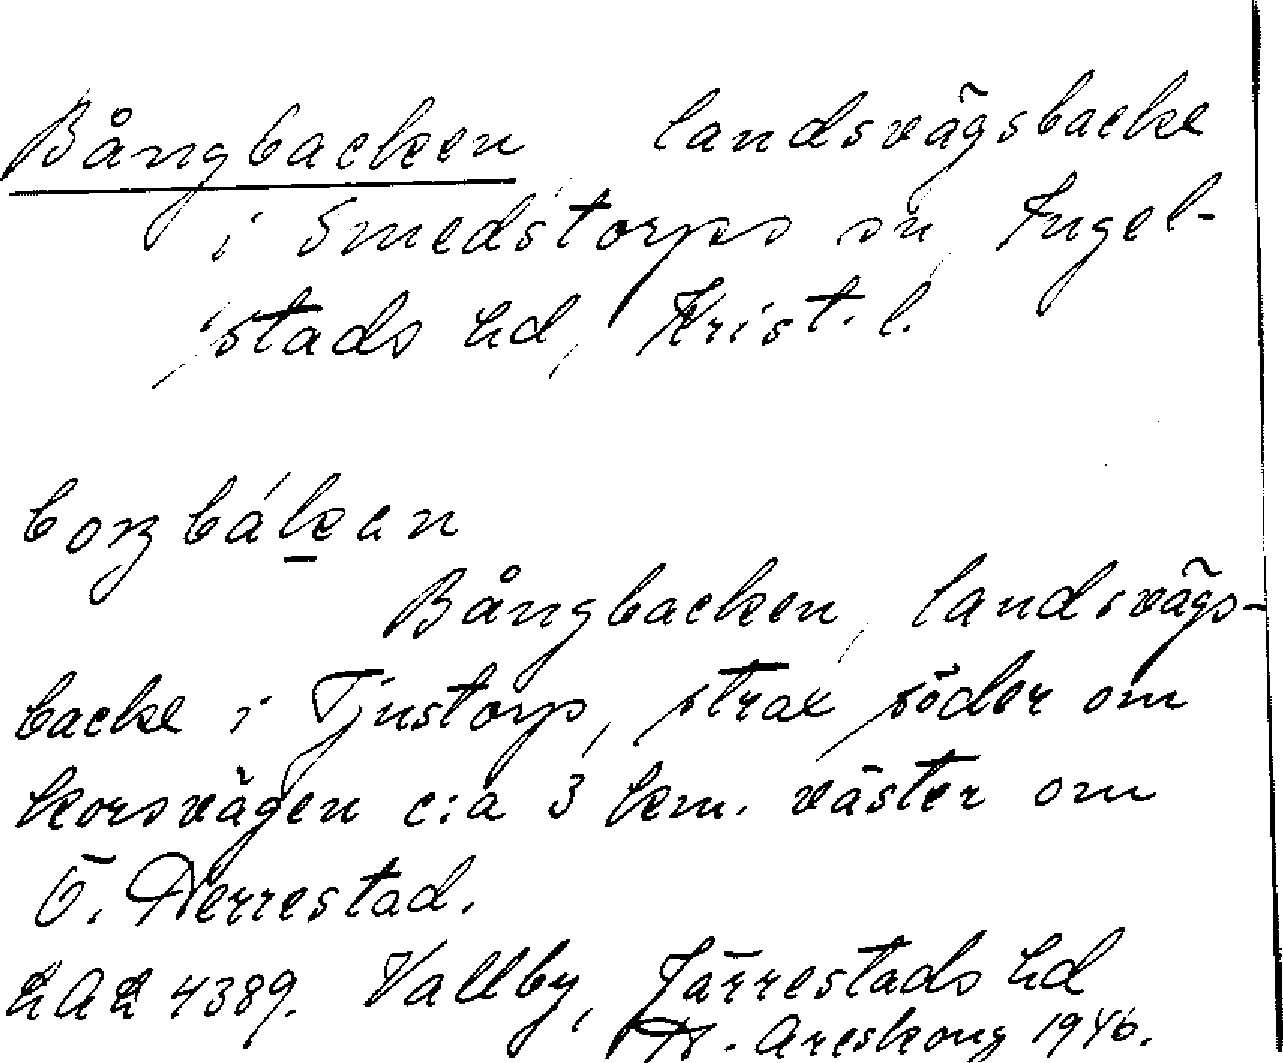 Bångbacken, landsvägsbacke
i Smedstorps sn, Ingel-
stads hd, Krist. l.
Bångbacken, landsvägs-
backe i Tjustorp, strax söder om
korsvägen c:a 3 km. väster om
Ö. Herrestad.
LAL 4389. Vallby, Järrestads hd
H. Areskoug 1946.